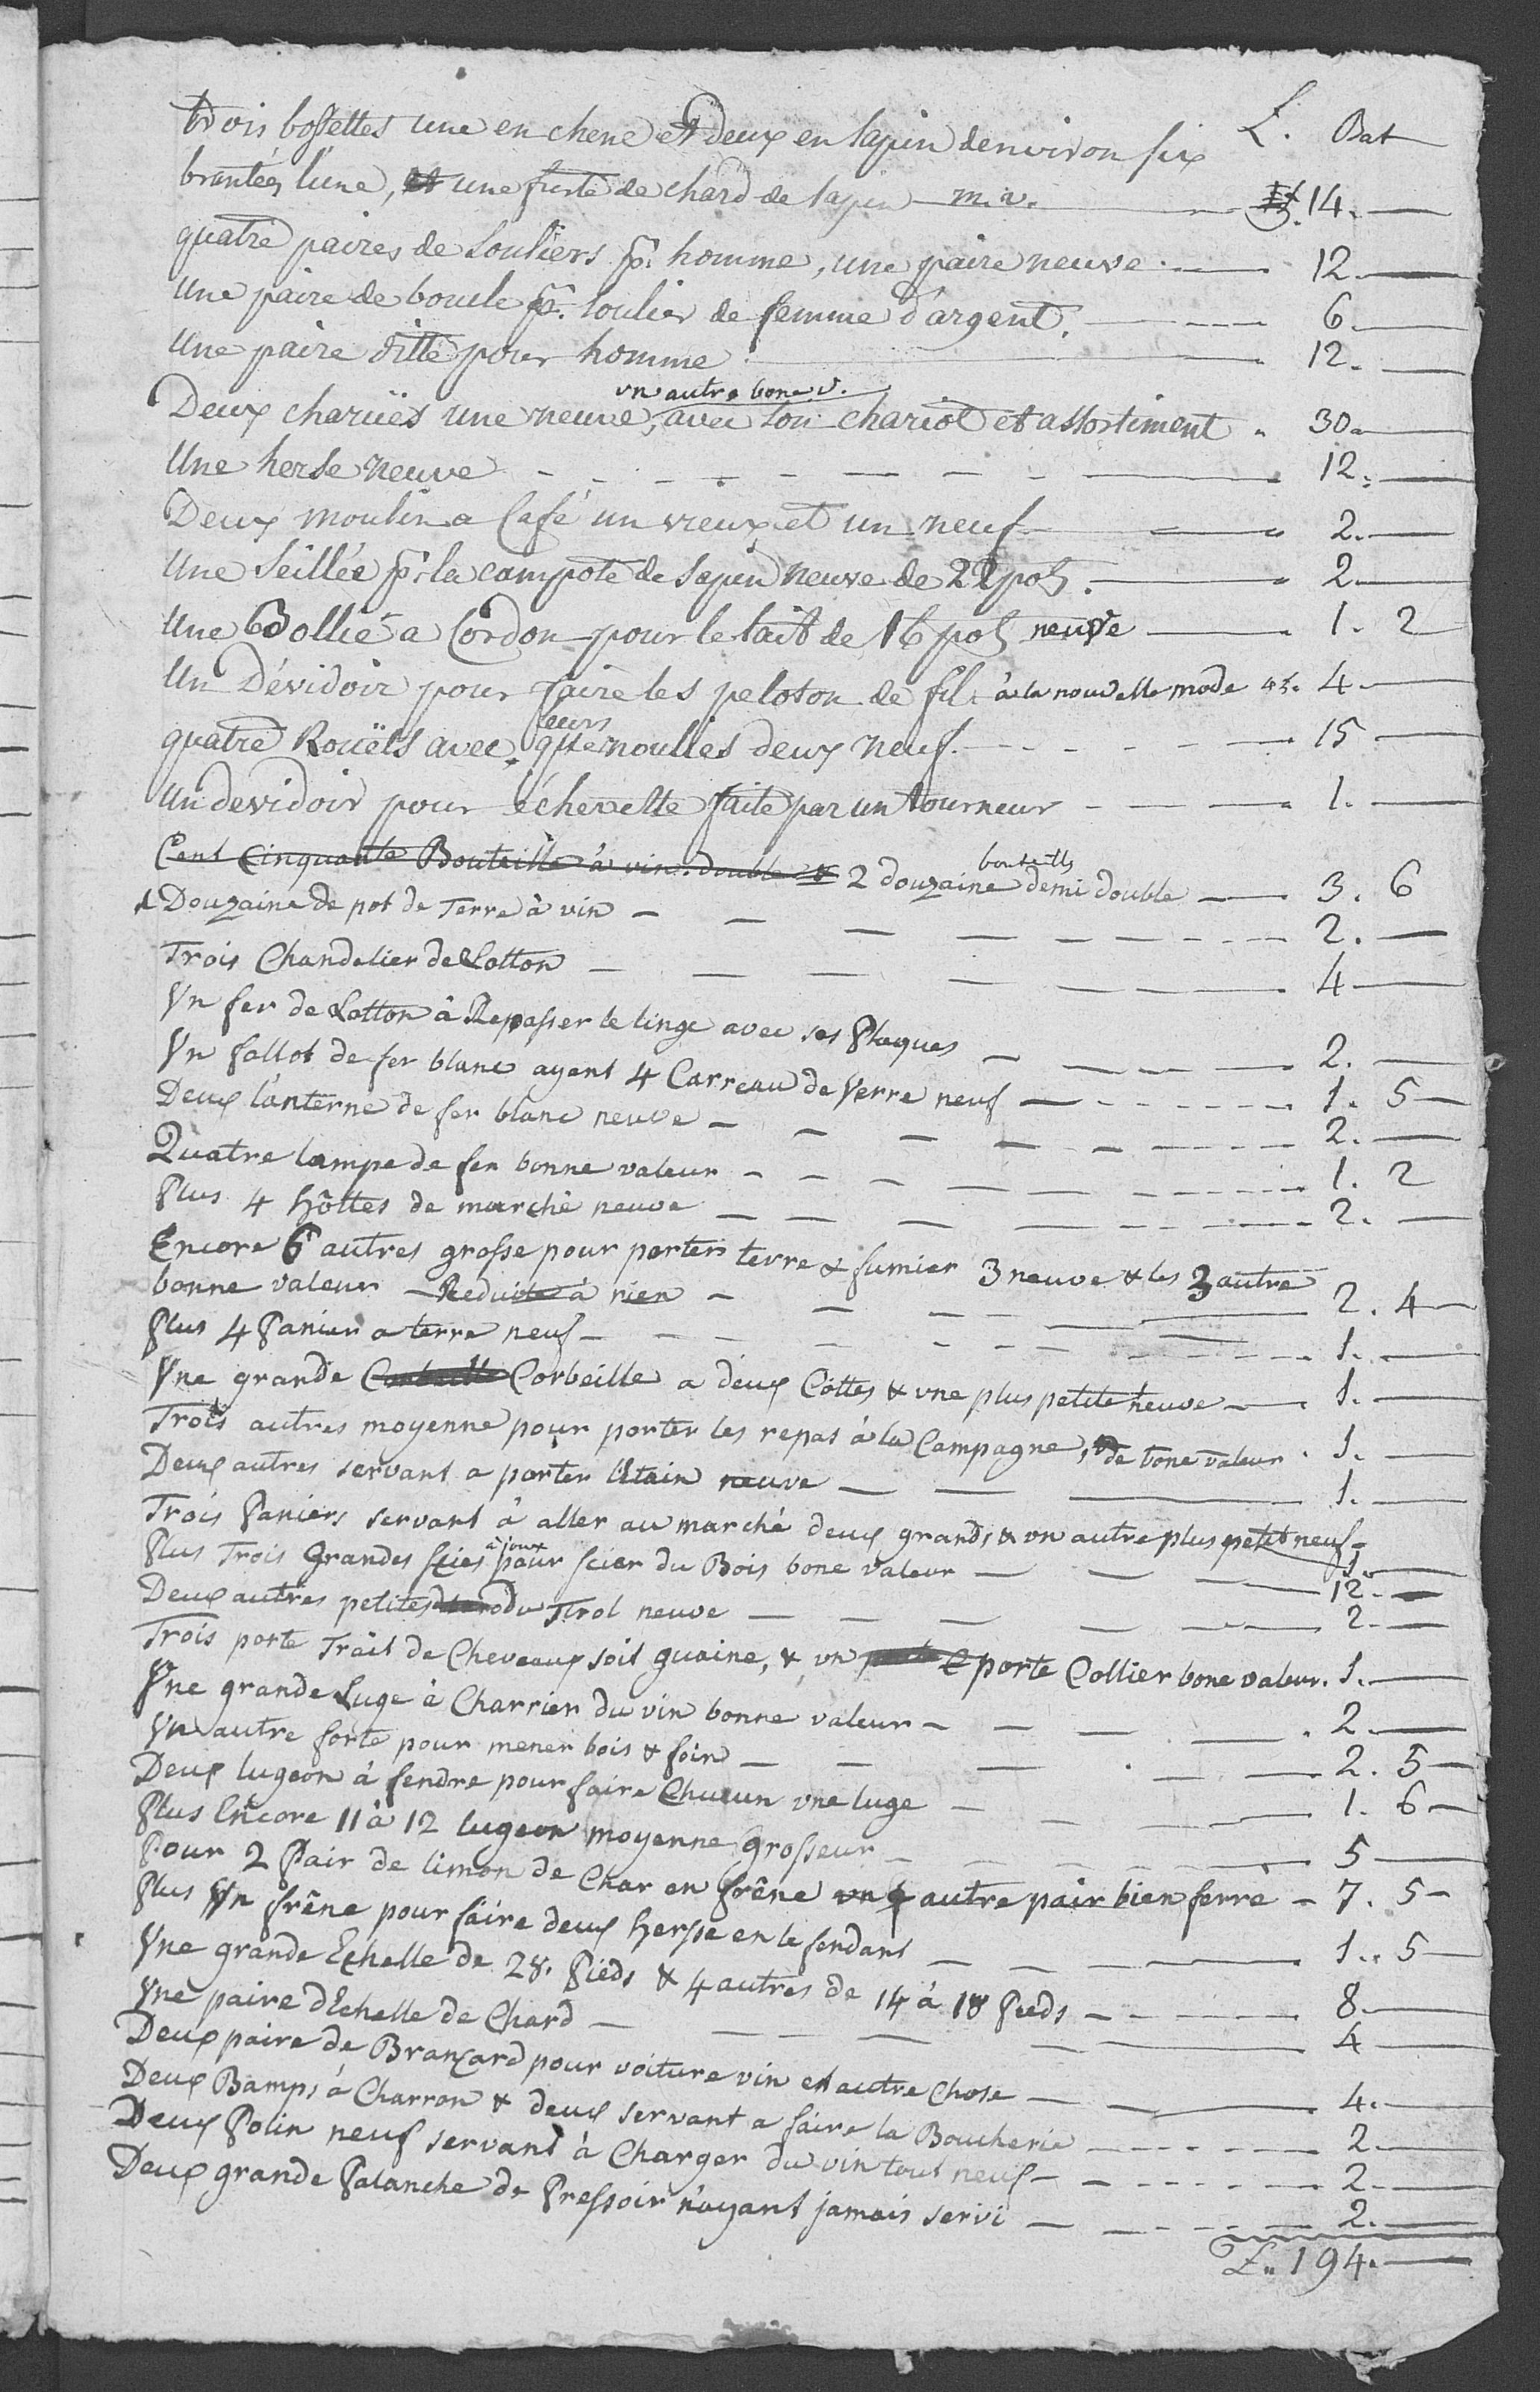 L. Bat
trois bossettes une en chene et deux en sapin denviron six
brantées l'une, et une fuste de chard de sapin m. v. 14. —
quatre paires de souliers pr. homme, une paire neuve. — 12. —
Une paire de boucle pr. soulier de femme d'argent. — 6. —
Une paire ditte pour homme — 12. —
un autre bone v.
Deux charuës une neuve, avec son chariot et assortiment . 30. —
Une herse neuve — 12. —
Deux moulin a Café un vieux et un neuf — 2. —
Une Seillée pr. la compote de sapin neuve de 22 pots. — 2. —
Une Bollie a Cordon pour le lait de 16 pots neuve — 1. 2
Un Dévidoir pour faire les peloton de fil à la nouvelle mode 4. —
leurs
quatre Rouëts avec quenoulies deux neuf. — 15 —
Un devidoir pour échevette faite par un tourneur — 1. —
bouteills
Cent Cinquante Bouteille à vin double & 2 douzaine demi double — 3. 6
1 Douzaine de pot de Terre à vin — 2. —
Trois Chandelier de Lotton — 4 —
Vn fer de Lotton à Repasser le linge avec ses Plaques — 2. —
Vn fallot de fer blanc ayant 4 Carreau de Verre neuf — 1. 5 —
Deux l'anterne de fer blanc neuve — 2. —
Quatre lampe de fer bonne valeur — 1. 2
Plus 4 hôttes de marché neuve — 2. —
Encore 6 autres grosse pour porter terre & fumier 3 neuve & les 3 autre
bonne valeur Reduite à rien — 2. 4 —
Plus 4 Panier a terre neuf — 1. —
Vne grande Corbeille Corbeille a deux Cottes & vne plus petite neuve — 1. —
Trois autres moyenne pour porter les repas à la Campagne, de bone valeur . 1. —
Deux autres servant a porter l'Etain neuve — 1. —
Trois Paniers servant à aller au marché deux grands & vn autre plus petit neuf — 1. —
à joux
Plus Trois Grandes scies pour scier du Bois bone valeur — 12. —
Deux autres petites du Tirol neuve — 2. —
Trois porte Trait de Cheveaux soit guaine, & vn porte Collier bone valeur. 1. —
Vne grande Luge à Charrier du vin bonne valeur — 2. —
Vn autre forte pour mener bois & foin — 2. 5 —
Deux lugeon à fendre pour faire Chucun vne luge — 1. 6 —
Plus Encore 11 à 12 lugeon moyenne Grosseur — 5 —
Pour 2 Pair de limon de Char en frêne autre pair bien ferré — 7. 5 —
Plus Vn frêne pour faire deux Herse en le fendant — 1. 5 —
Vne grande Echelle de 28. Pieds & 4 autres de 14 à 18 Pieds — 8. —
Vne paire d'Echelle de Chard — 4 —
Deux paire de Brançard pour voiture vin et autre Chose — 4. —
Deux Bamps à Charron & deux servant a faire la Boucherie — 2. —
Deux Polin neuf servant à Charger du vin tout neuf — 2. —
Deux grande Palanche de Pressoir n'ayant jamais servi — 2. —
L. 194. —